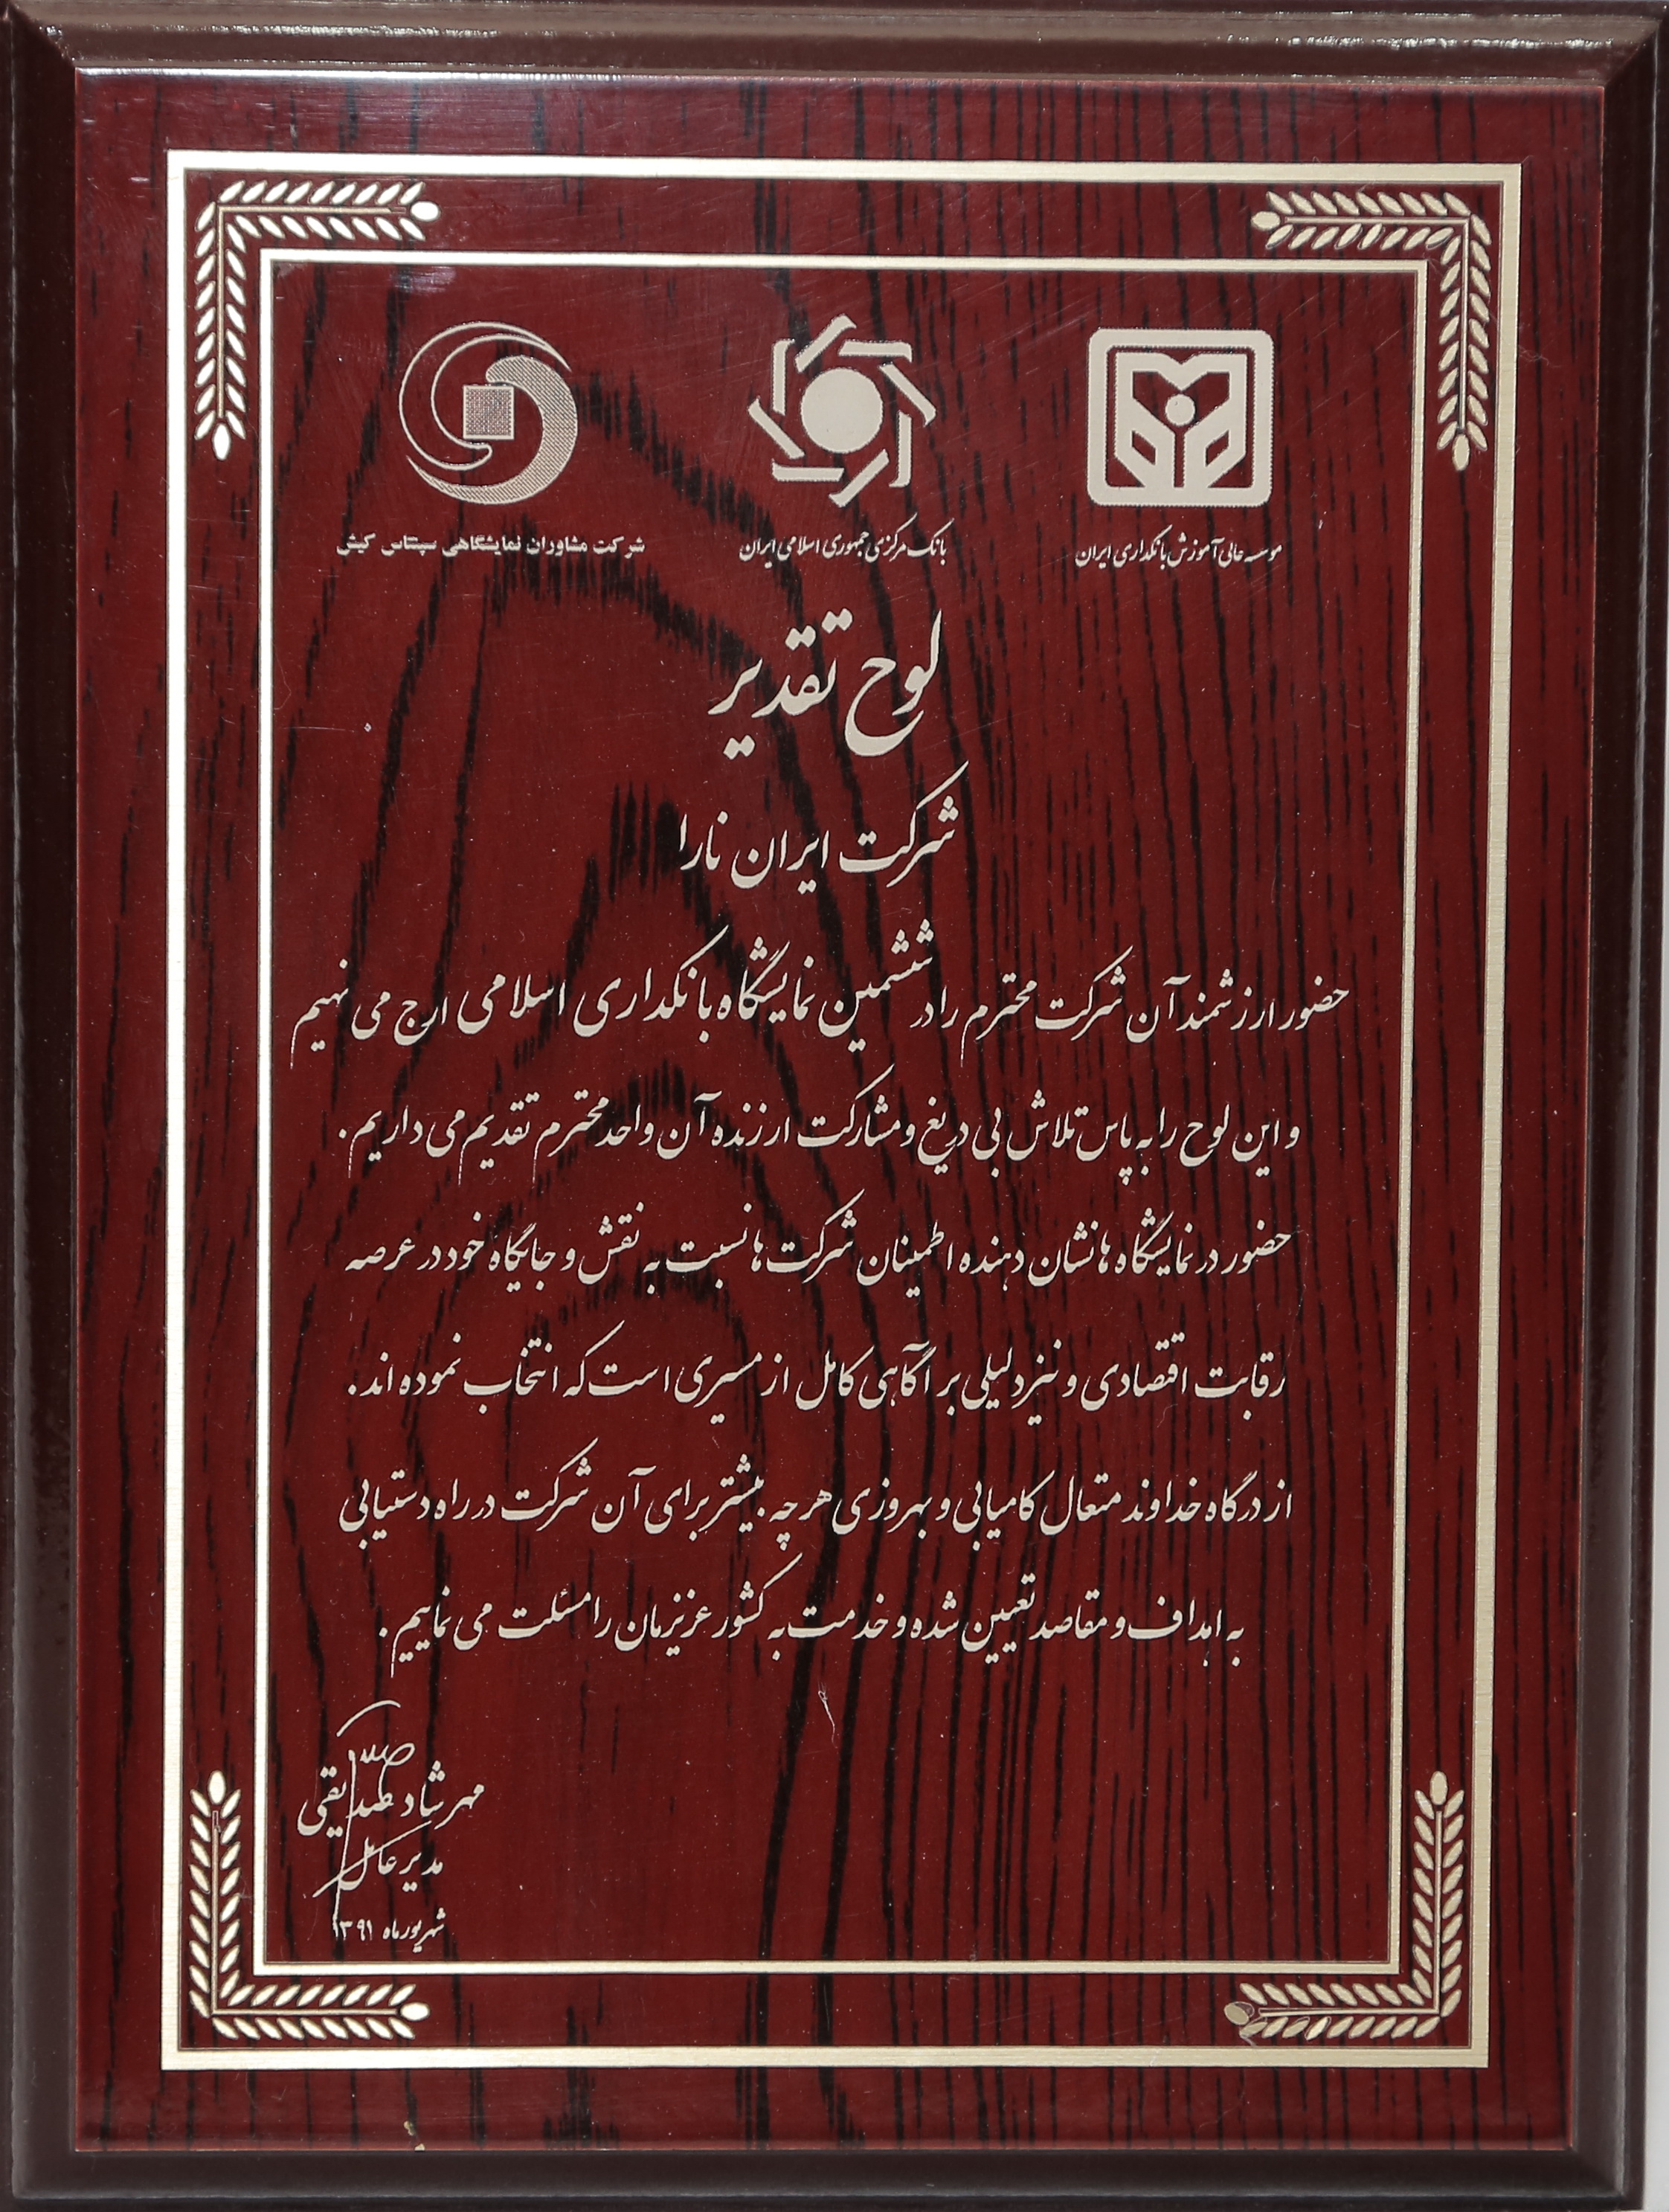 موسسه عالی آموزش بانکداری ایران
بانک مرکزی جمهوری اسلامی ایران
شرکت مشاوران نمایشگاهی سپتاس کیش
لوح تقدیر
شرکت ایران نارا
حضور ارزشمند آن شرکت محترم را در ششمین نمایشگاه بانکداری اسلامی ارج می نهیم
و این لوح را به پاس تلاش بی دریغ و مشارکت ارزنده آن واحد محترم تقدیم می داریم.
حضور در نمایشگاه ها نشان دهنده اطمینان شرکت ها نسبت به نقش و جایگاه خود در عرصه
رقابت اقتصادی و نیز دلیلی بر آگاهی کامل از مسیری است که انتخاب نموده اند.
از درگاه خداوند متعال کامیابی و بهروزی هر چه بیشتر برای آن شرکت در راه دستیابی
به اهداف و مقاصد تعیین شده و خدمت به کشور عزیزمان را مسئلت می نماییم.
مهرشاد صدیقی
مدیر عامل
شهریور ماه ۱۳۹۱